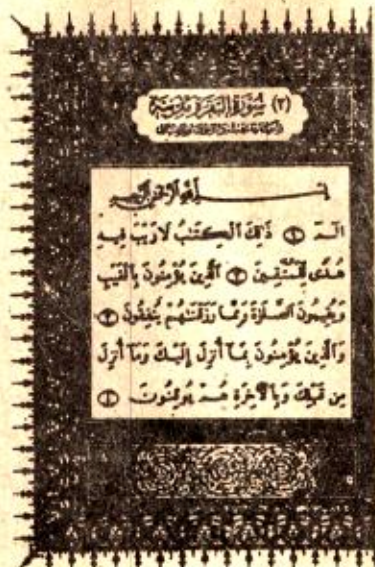 (٢) سُورَةُ البَقَرَةِ مَدَنِيَّة
بِسْمِ اللَّهِ الرَّحْمَٰنِ الرَّحِيمِ
الٓمٓ ١ ذَٰلِكَ ٱلْكِتَٰبُ لَا رَيْبَ فِيهِ
هُدًى لِّلْمُتَّقِينَ ٢ ٱلَّذِينَ يُؤْمِنُونَ بِٱلْغَيْبِ
وَيُقِيمُونَ ٱلصَّلَوٰةَ وَمِمَّا رَزَقْنَٰهُمْ يُنفِقُونَ ٣
وَٱلَّذِينَ يُؤْمِنُونَ بِمَآ أُنزِلَ إِلَيْكَ وَمَآ أُنزِلَ
مِن قَبْلِكَ وَبِٱلْءَاخِرَةِ هُمْ يُوقِنُونَ ٤